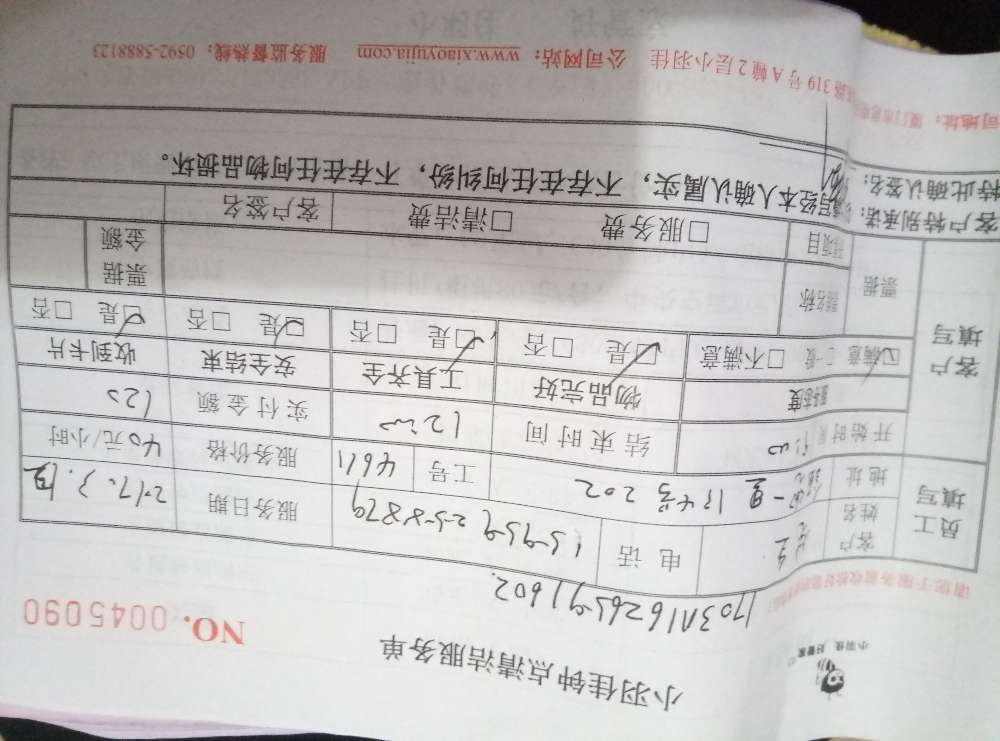 小羽佳 好管家
小羽佳钟点清洁服务单
NO. 0045090
1703A11626591602.
员工填写
客户姓名
电话
服务日期
地址
134号202
工号 4611
服务价格 40元/小时
开始时间
结束时间 12:00
实付金额 120
客户填写
服务态度 物品完好 工具齐全 安全结束 收到卡片
☑满意 □一般 □不满意 ☑是 □否 ☑是 □否 ☑是 □否 ☑是 □否
票据
票据金额
□服务费 □清洁费 客户签名
客户特别承诺:
经本人确认属实,不存在任何纠纷,不存在任何物品损坏。
特此确认签名:
319号A幢2层小羽佳 公司网站:www.xiaoyujia.com 服务监督热线:0592-5888123